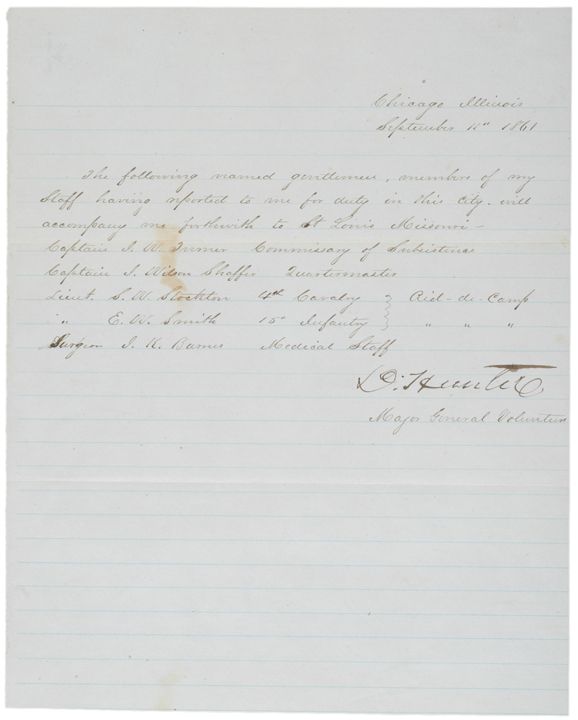 Chicago Illinois
September 11th 1861
The following named gentlemen, members of my
Staff having reported to me for duty in this city will
accompany me forthwith to St Louis Missouri—
Captain J. W. Turner Commissary of Subsistence
Captain J. Wilson Shaffer Quartermaster
Lieut. S. W. Stockton 4th Cavalry } Aid-de-Camp
" E. W. Smith 15th Infantry } " " "
Surgeon J. K. Barnes Medical Staff
D. Hunter
Major General Volunteers